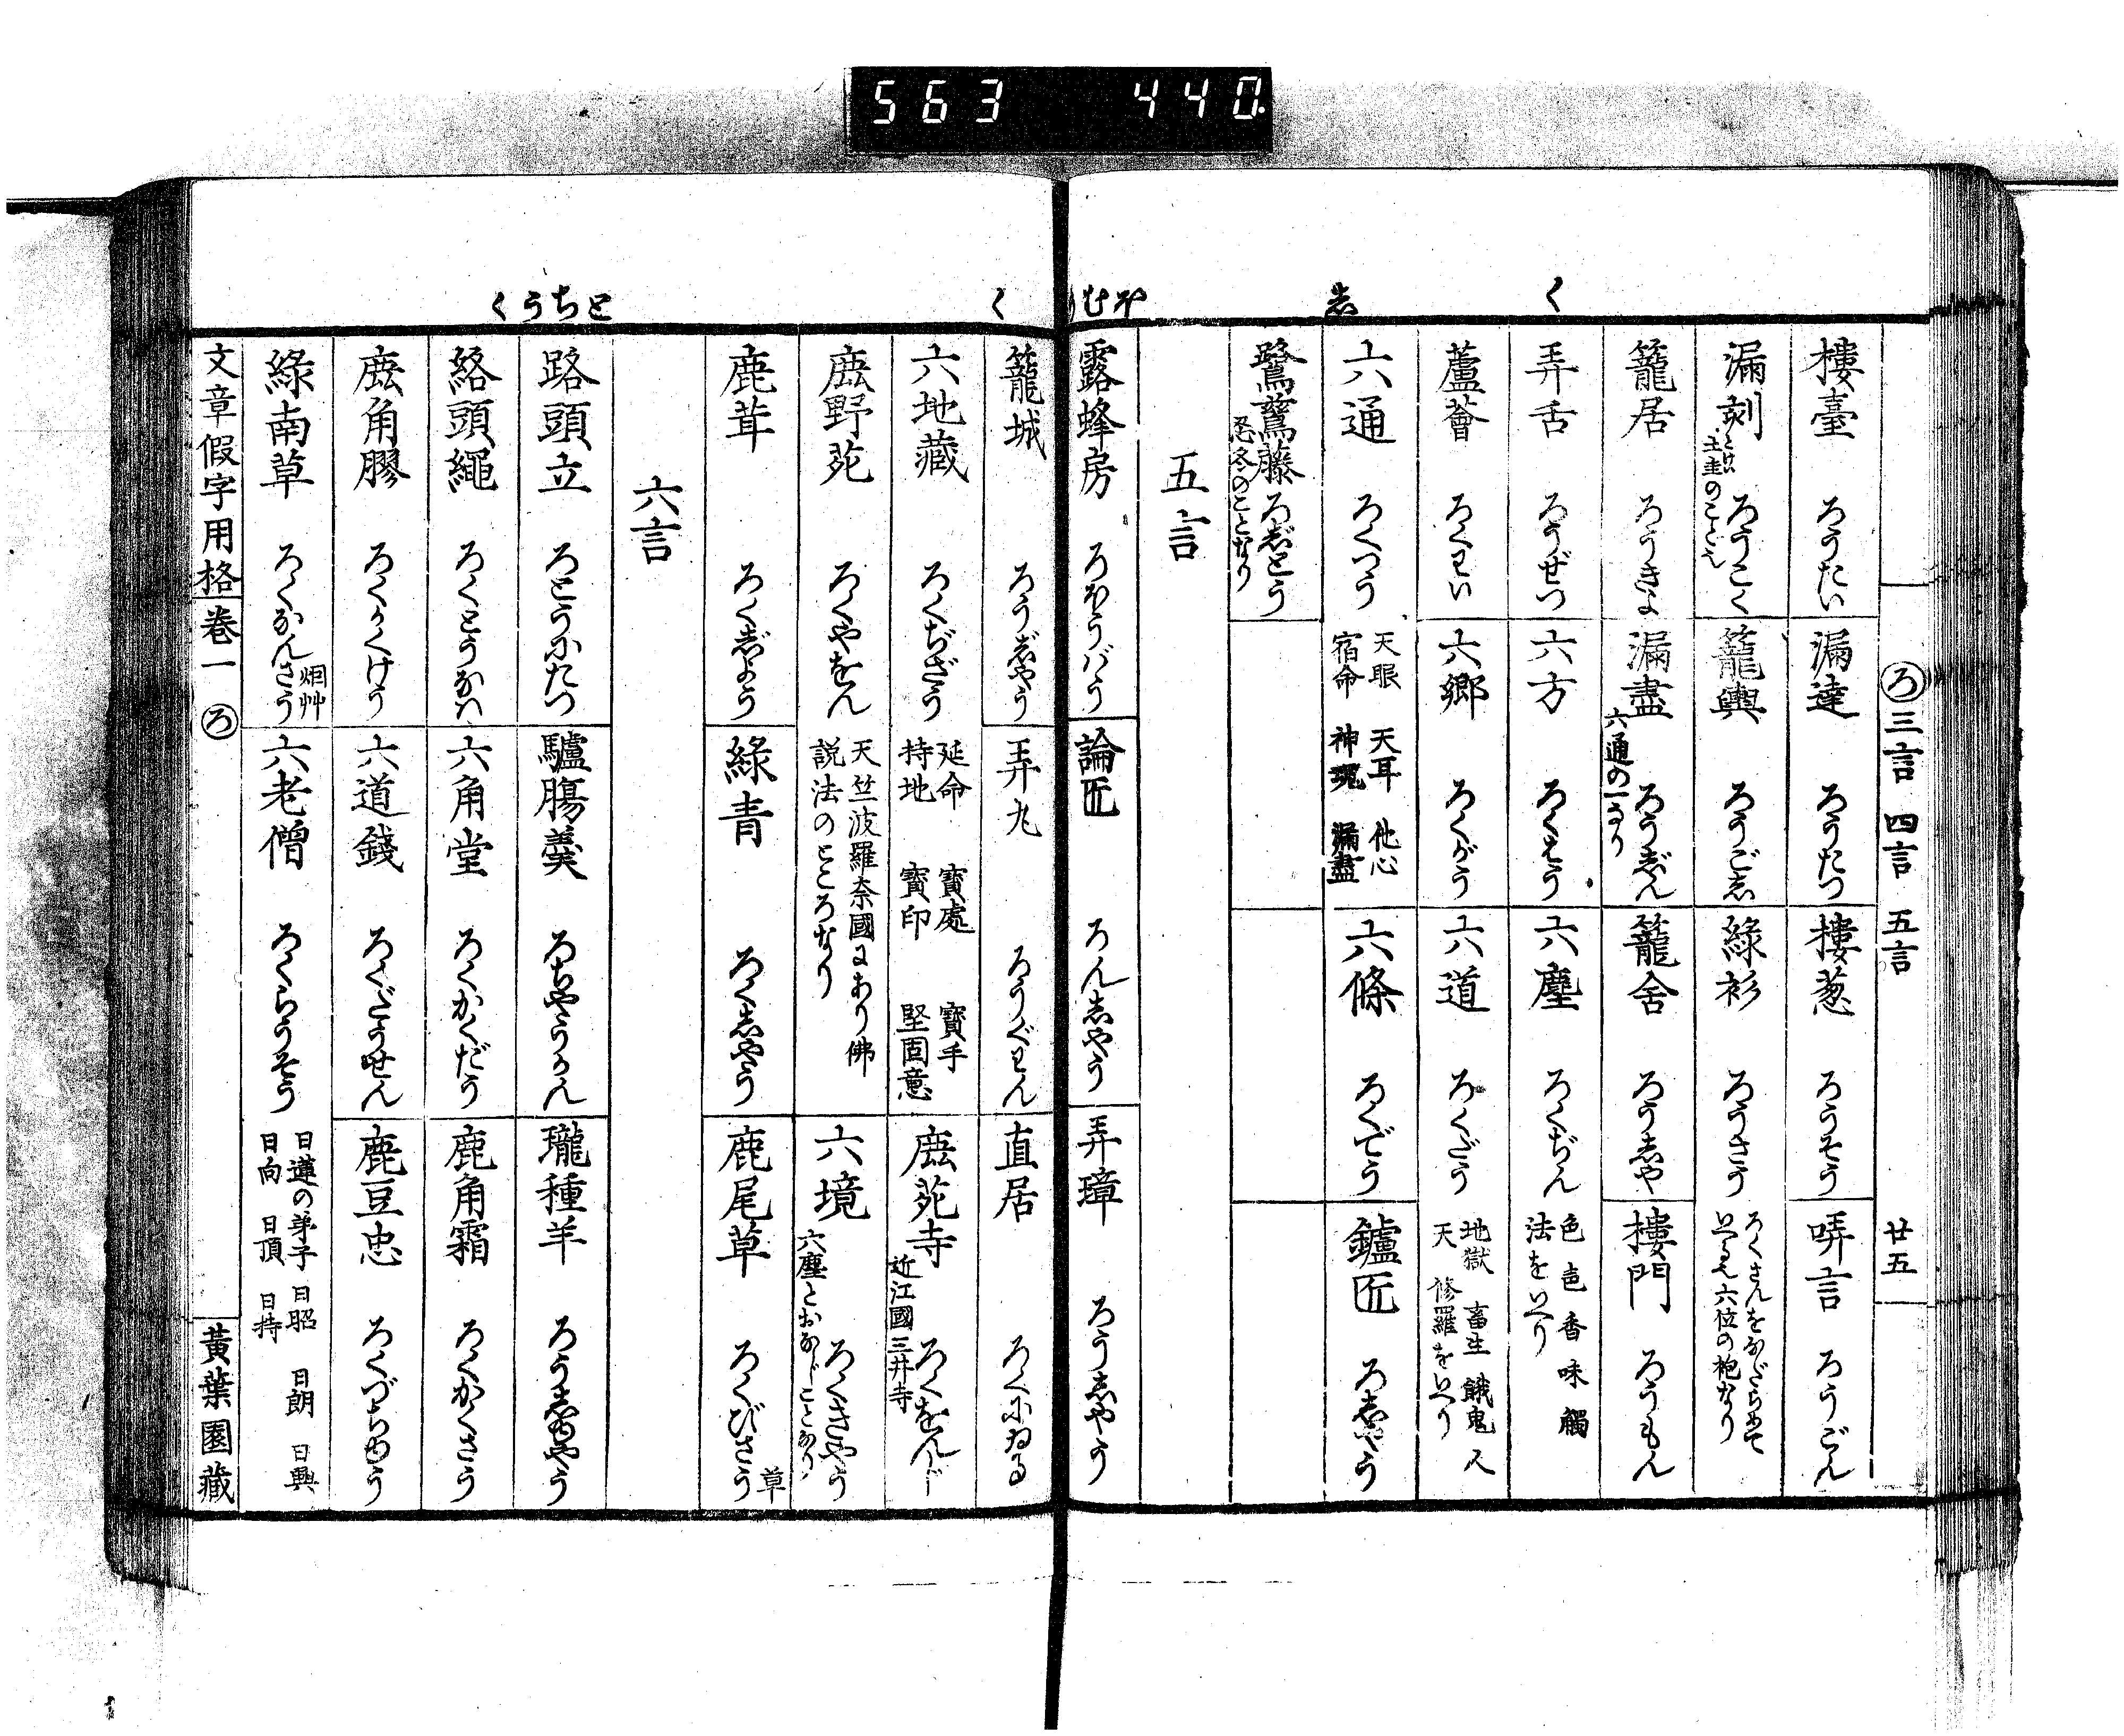 563 440
ろ 三言 四言 五言 廿五
く
し
樓臺 ろうたい
漏達 ろうたつ
樓葱 ろうそう
哢言 ろうごん
漏刻 ろうこく
籠輿 ろうごし
綠衫 ろうさう
籠居 ろうきよ
漏盡 ろうじん 六通の一なり
籠舎 ろうしや
樓門 ろうもん
弄舌 ろうぜつ
六方 ろくはう
六塵 ろくぢん 色 声 香 味 觸 法をいへり
蘆薈 ろくわい
六郷 ろくがう
六道 ろくだう 地獄 畜生 餓鬼 人 天 修羅をいへり
六通 ろくつう 天眼 天耳 他心 宿命 神境 漏盡
六條 ろくでう
鑪匠 ろしやう
鷺鶿藤 ろじとう 忍冬のことなり
五言
露蜂房 ろほうバう
論匠 ろんしやう
弄璋 ろうしやう
く
とちうく
籠城 ろうじやう
弄丸 ろうぐわん
直居 ろくにゐる
六地藏 ろくぢざう 延命 寳處 寳手 持地 寳印 堅固意
鹿苑寺 ろくをんじ 近江國三井寺
鹿野苑 ろくやをん 天竺波羅奈國にあり佛説法のところなり
六境 ろくきやう 六塵とおなじことなり
鹿茸 ろくじよう
綠青 ろくしやう
鹿尾草 ろくびさう 草
六言
路頭立 ろとうにたつ
驢腸羹 ろちやうかん
瓏種羊 ろうしゆやう
絡頭繩 ろくとうなハ
六角堂 ろくかくだう
鹿角霜 ろくかくさう
鹿角膠 ろくかくけう
六道錢 ろくだうせん
鹿豆忠 ろくづちゆう
綠南草 ろくなんさう
六老僧 ろくらうそう 日蓮の弟子 日昭 日朗 日興 日向 日頂 日持
文章假字用格 卷一 ろ 黄葉園藏